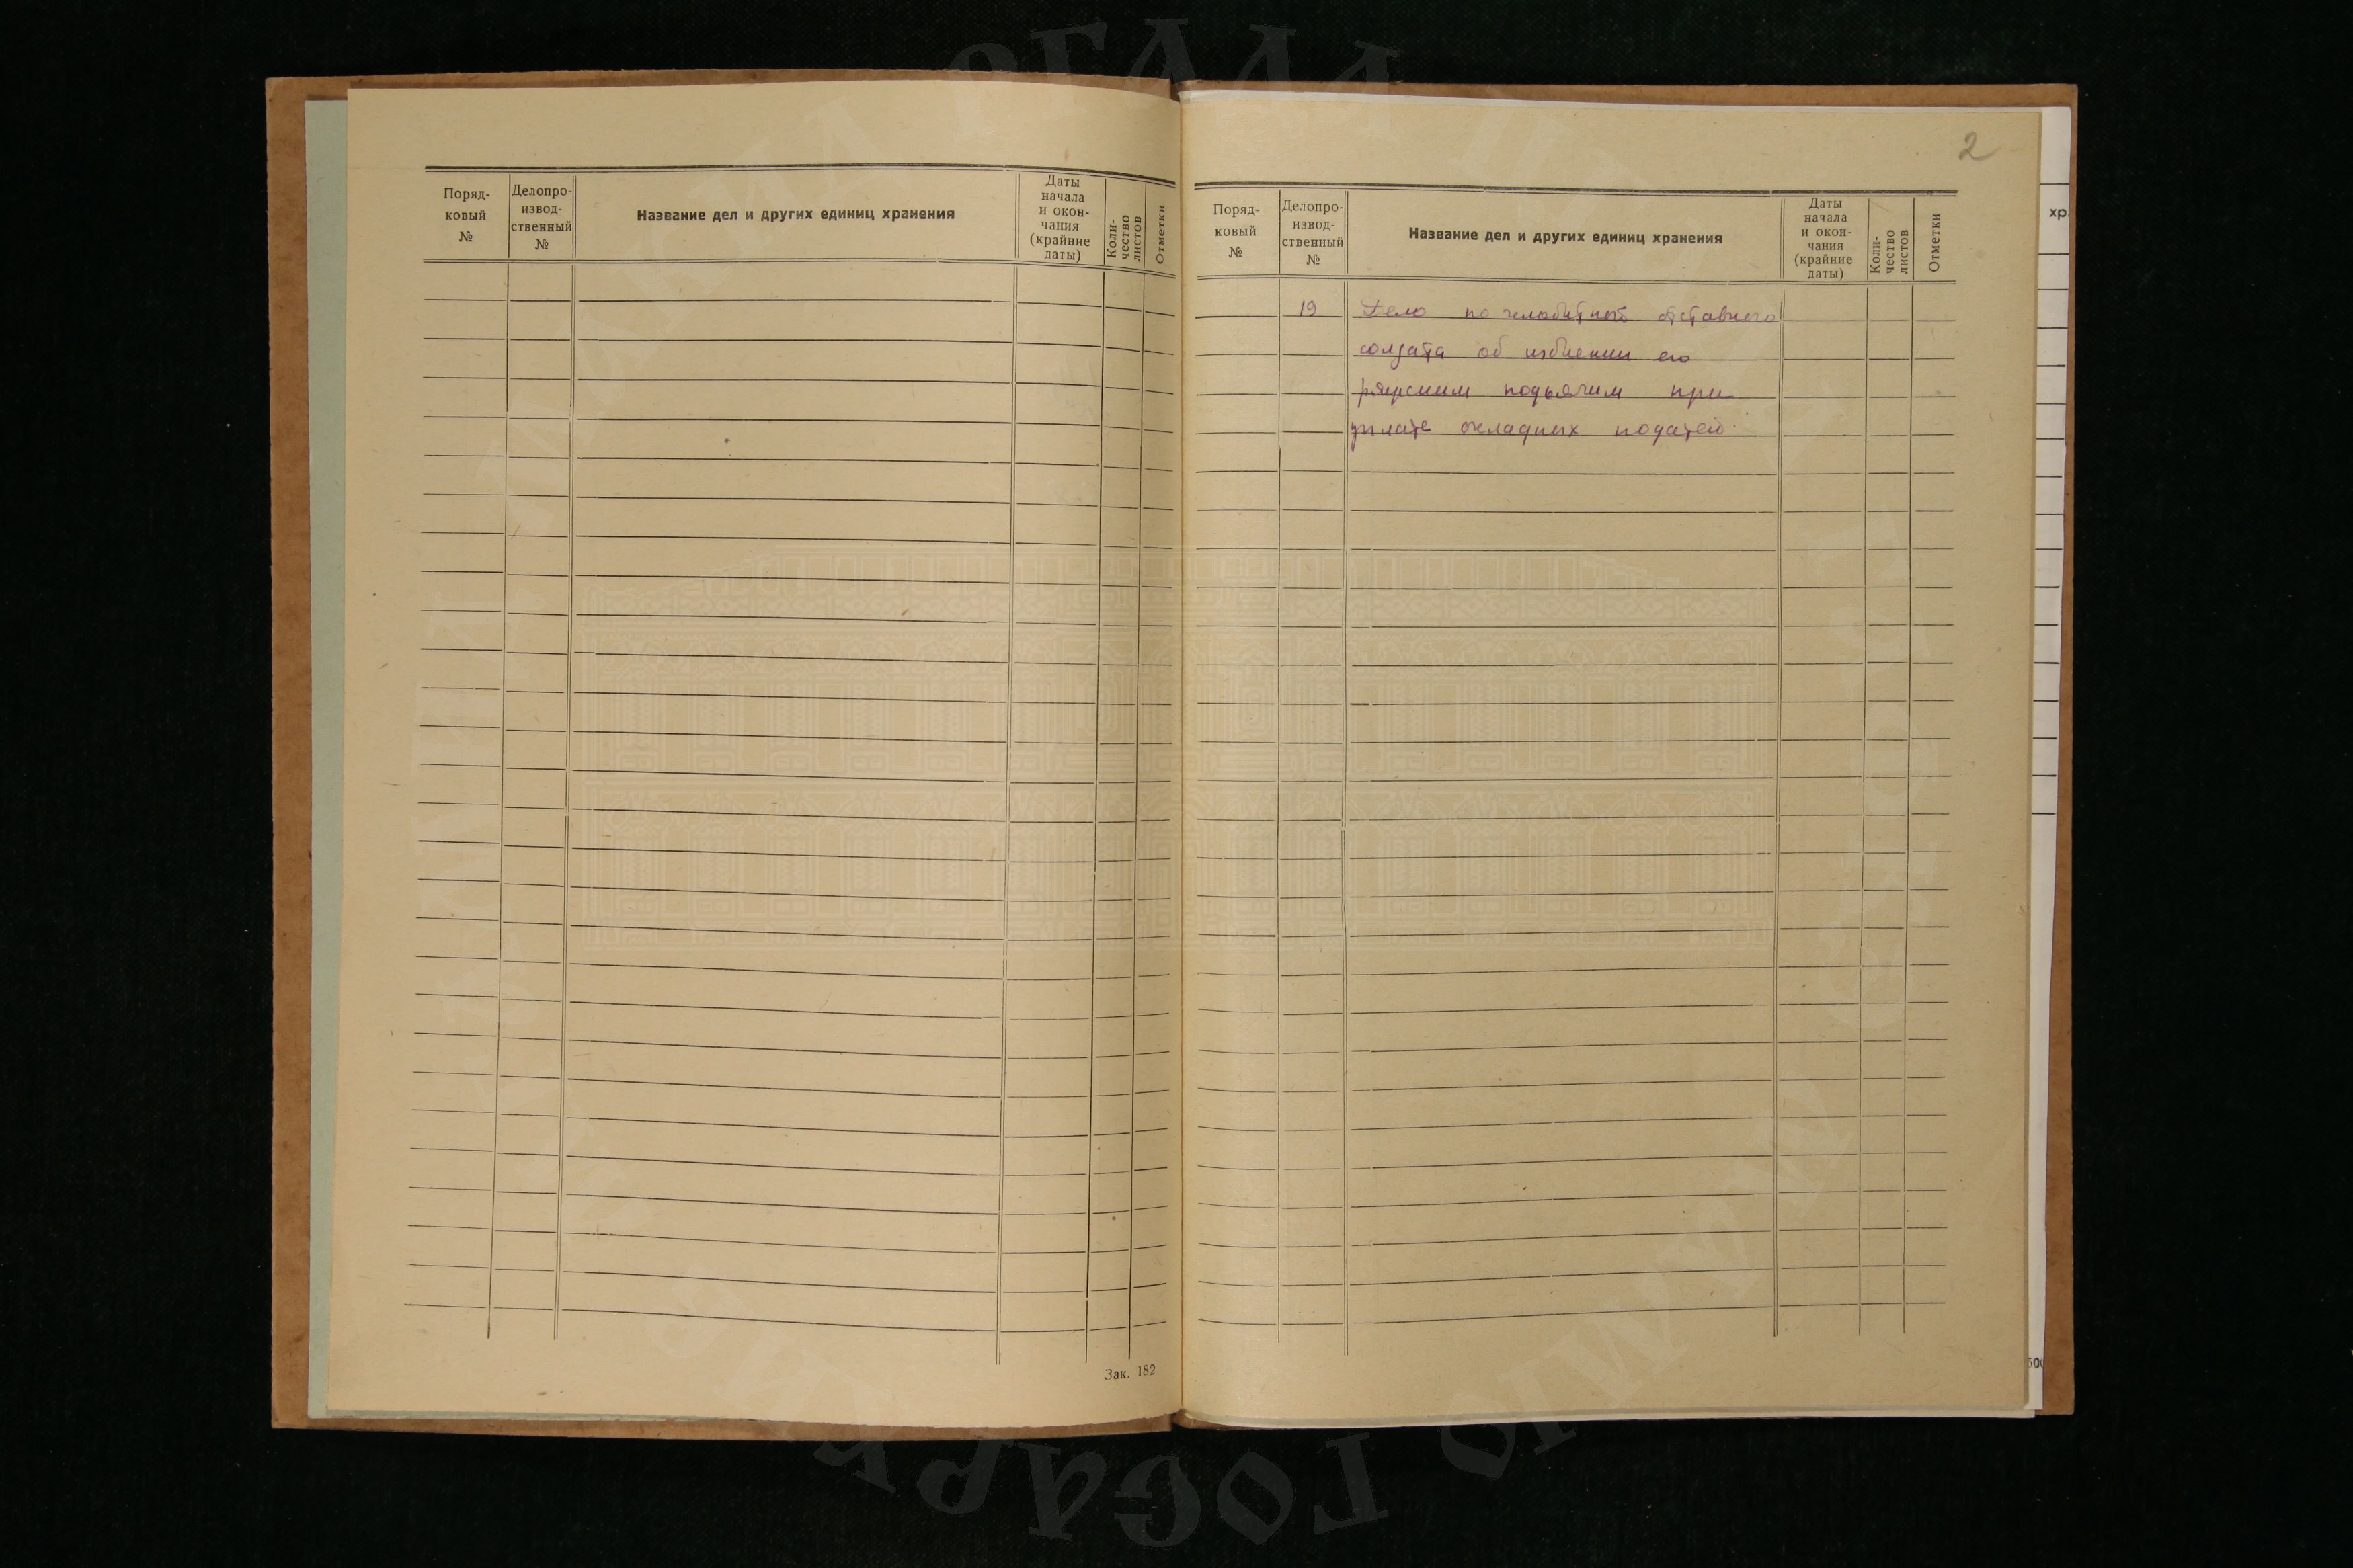 Поряд-
ковый
№
Делопро-
извод-
ственный
№
Название дел и других единиц хранения
Даты
начала
и окон-
чания
(крайние
даты)
Коли-
чество
листов
Отметки
Зак. 182
2
Поряд-
ковый
№
Делопро-
извод-
ственный
№
Название дел и других единиц хранения
Даты
начала
и окон-
чания
(крайние
даты)
Коли-
чество
листов
Отметки
19 Дело по челобитной отставного
солдата об избиении его
ряжским подьячим при
уплате окладных податей.
хр.